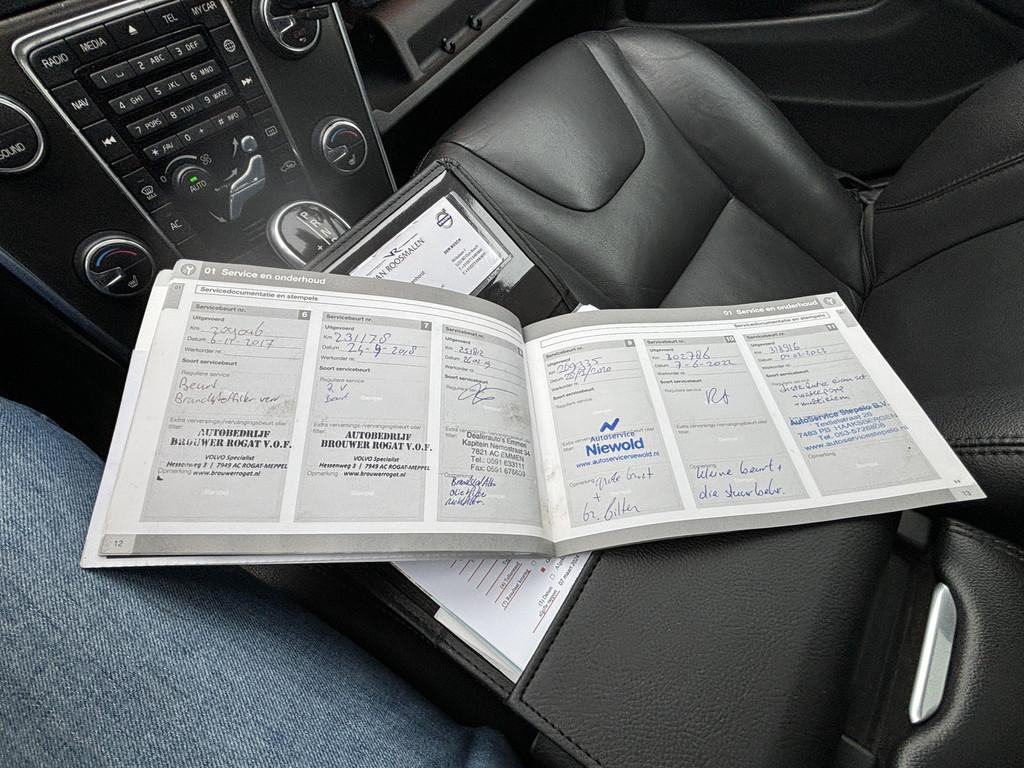 RADIO
MEDIA
TEL
MY CAR
1
2 ABC
3 DEF
4 GHI
5 JKL
6 MNO
7 PQRS
8 TUV
9 WXYZ
* FAV
0 +
# INFO
NAV
SOUND
AUTO
AC
VAN ROOSMALEN
01 Service en onderhoud
Servicedocumentatie en stempels
Servicebeurt nr.
6
Uitgevoerd
Km
Datum 6-11-2017
Werkorder nr.
Soort servicebeurt
Reguliere service
Beurt
Brandstoffilter verv
AUTOBEDRIJF
BROUWER ROGAT V.O.F.
VOLVO Specialist
Hessenweg 3 | 7949 AC ROGAT-MEPPEL
www.brouwerrogat.nl
Opmerking
Stempel
12
Servicebeurt nr.
7
Uitgevoerd
Km 231178
Datum 24-9-2018
Werkorder nr.
Soort servicebeurt
Reguliere service
Beurt
AUTOBEDRIJF
BROUWER ROGAT V.O.F.
VOLVO Specialist
Hessenweg 3 | 7949 AC ROGAT-MEPPEL
www.brouwerrogat.nl
Opmerking
Stempel
Servicebeurt nr.
Uitgevoerd
Km
Datum
Werkorder nr.
Soort servicebeurt
Reguliere service
Dealerauto's Emmen
Kapitein Nemostraat 34
7821 AC EMMEN
Tel.: 0591 633111
Fax: 0591 676609
Opmerking
01 Service en onderhoud
Servicedocumentatie en stempels
Servicebeurt nr.
9
Uitgevoerd
Km 269335
Datum 25/2/2020
Werkorder nr.
Soort servicebeurt
Reguliere service
Autoservice
Niewold
www.autoserviceniewold.nl
Opmerking
grote beurt
+
br. filter
Servicebeurt nr.
10
Uitgevoerd
Km 302786
Datum 7-6-2022
Werkorder nr.
Soort servicebeurt
Reguliere service
Opmerking
kleine beurt +
Servicebeurt nr.
11
Uitgevoerd
Km 318916
Datum
Werkorder nr.
Soort servicebeurt
distributie riem set
+ waterpomp
+ multiriem
AutoService Stepelo B.V.
Textielstraat 26
7483 PB HAAKSBERGEN
Tel. 053-5726806
www.autoservicestepelo.nl
Opmerking
13